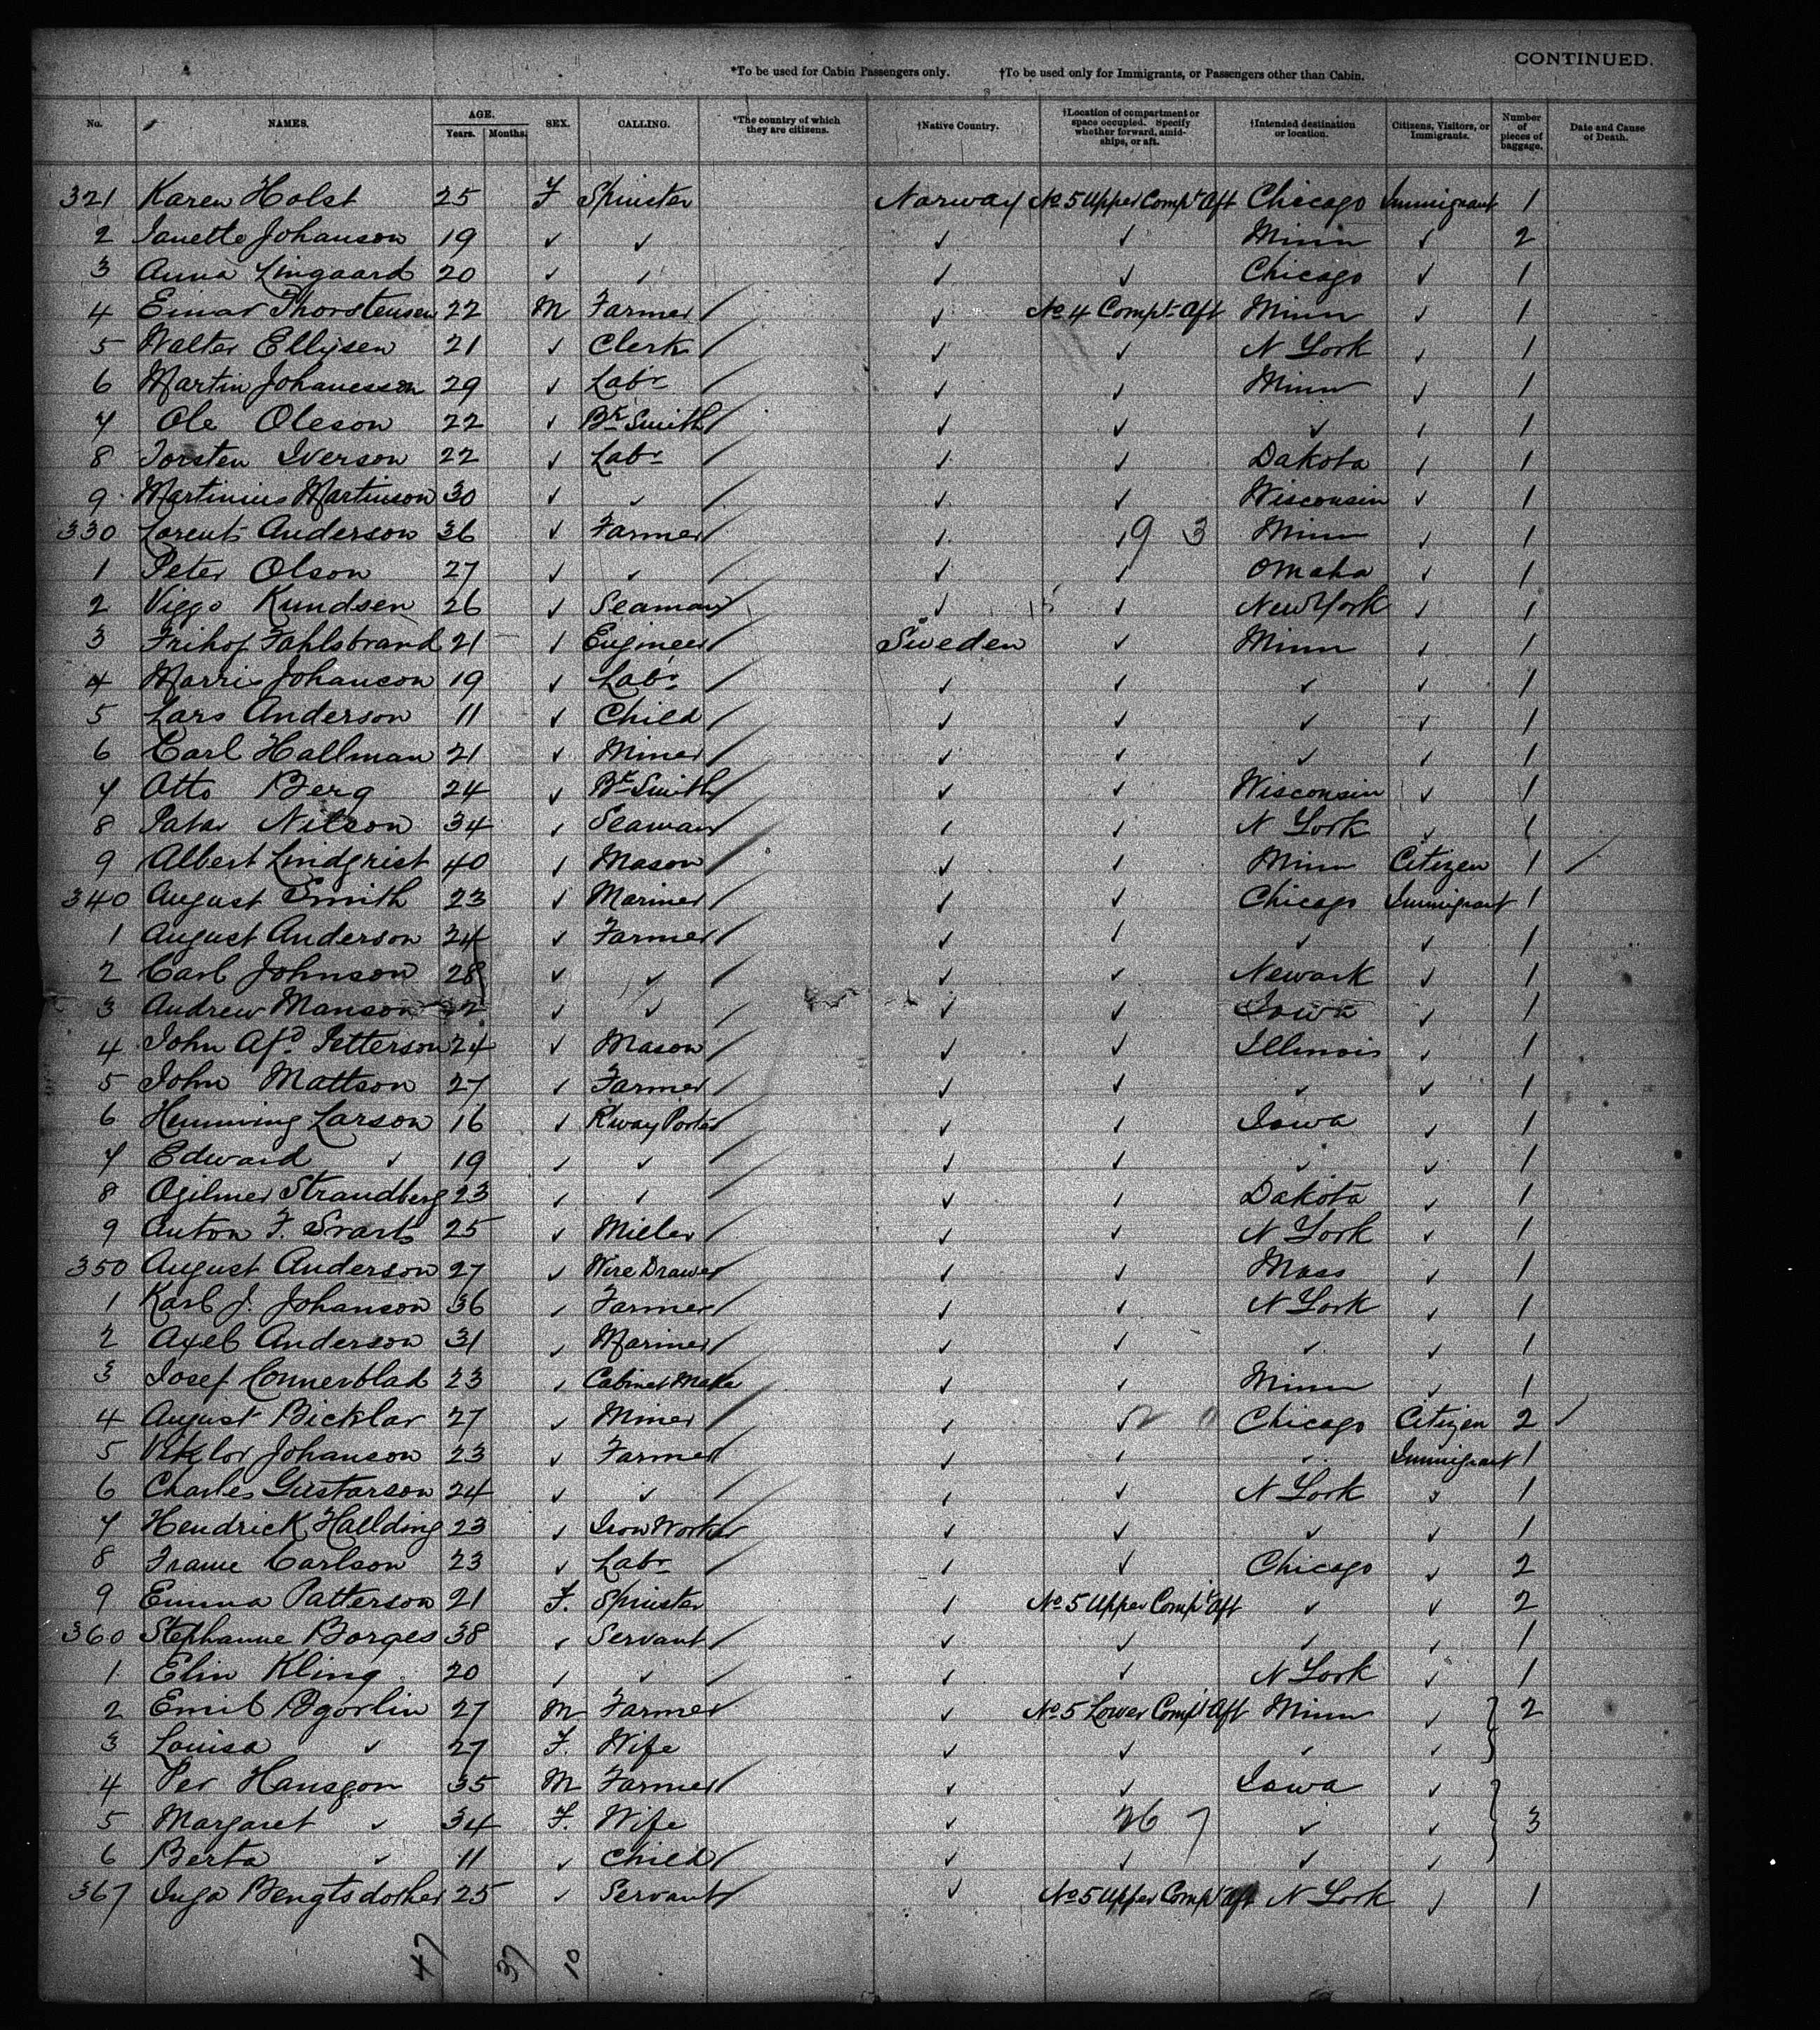 CONTINUED.
*To be used for Cabin Passengers only. †To be used only for Immigrants, or Passengers other than Cabin.
No. NAMES. AGE. Years. Months. SEX. CALLING. *The country of which they are citizens. †Native Country. †Location of compartment or space occupied. Specify whether forward, amidships, or aft. †Intended destination or location. Citizens, Visitors, or Immigrants. Number of pieces of baggage. Date and Cause of Death.
321 Karen Holst 25 F Spinster Norway No 5 Upper Compt Aft Chicago Immigrant 1
2 Janette Johanson 19 ✓ ✓ ✓ ✓ Minn ✓ 2
3 Anna Lingaard 20 ✓ ✓ ✓ ✓ Chicago ✓ 1
4 Einar Thorstensen 22 M Farmer ✓ No 4 Compt Aft Minn ✓ 1
5 Walter Ellysen 21 ✓ Clerk ✓ ✓ N York ✓ 1
6 Martin Johanesson 29 ✓ Labr ✓ ✓ Minn ✓ 1
7 Ole Oleson 22 ✓ Bk Smith ✓ ✓ ✓ ✓ 1
8 Torsten Iverson 22 ✓ Labr ✓ ✓ Dakota ✓ 1
9 Martinius Martinson 30 ✓ ✓ ✓ ✓ Wisconsin ✓ 1
330 Lorents Anderson 36 ✓ Farmer ✓ ✓ 9 3 Minn ✓ 1
1 Peter Olson 27 ✓ ✓ ✓ ✓ Omaha ✓ 1
2 Viggo Kundsen 26 ✓ Seaman ✓ ✓ New York ✓ 1
3 Frihof Fahlsbrand 21 ✓ Engineer Sweden ✓ Minn ✓ 1
4 Marris Johanson 19 ✓ Labr ✓ ✓ ✓ ✓ 1
5 Lars Anderson 11 ✓ Child ✓ ✓ ✓ ✓ 1
6 Carl Hallman 21 ✓ Miner ✓ ✓ ✓ ✓ 1
7 Otto Berg 24 ✓ Bk Smith ✓ ✓ Wisconsin ✓ 1
8 Patar Nilson 34 ✓ Seaman ✓ ✓ N York ✓ 1
9 Albert Lindgrist 40 ✓ Mason ✓ ✓ Minn Citizen 1
340 August Smith 23 ✓ Mariner ✓ ✓ Chicago Immigrant 1
1 August Anderson 24 ✓ Farmer ✓ ✓ ✓ ✓ 1
2 Carl Johnson 28 ✓ ✓ ✓ ✓ Newark ✓ 1
3 Andrew Manson 22 ✓ ✓ ✓ ✓ Iowa ✓ 1
4 John Afd Petterson 24 ✓ Mason ✓ ✓ Illinois ✓ 1
5 John Mattson 27 ✓ Farmer ✓ ✓ ✓ ✓ 1
6 Hemming Larson 16 ✓ R'way Porter ✓ ✓ Iowa ✓ 1
7 Edward ✓ 19 ✓ ✓ ✓ ✓ ✓ ✓ 1
8 Ogilmer Strandberg 23 ✓ ✓ ✓ ✓ Dakota ✓ 1
9 Anton F. Svarts 25 ✓ Miller ✓ ✓ N York ✓ 1
350 August Anderson 27 ✓ Wire Drawer ✓ ✓ Mass ✓ 1
1 Karl J. Johanson 36 ✓ Farmer ✓ ✓ N York ✓ 1
2 Axel Anderson 31 ✓ Mariner ✓ ✓ ✓ ✓ 1
3 Josef Connerblad 23 ✓ Cabinet Maker ✓ ✓ Minn ✓ 1
4 August Bicklar 27 ✓ Miner ✓ ✓ Chicago Citizen 2 ✓
5 Viktor Johanson 23 ✓ Farmer ✓ ✓ ✓ Immigrant 1
6 Charles Gustarson 24 ✓ ✓ ✓ ✓ N York ✓ 1
7 Hendrick Hallding 23 ✓ Iron Worker ✓ ✓ ✓ ✓ 1
8 Carlson 23 ✓ Labr ✓ ✓ Chicago ✓ 2
9 Emma Patterson 21 F. Spinster ✓ No 5 Upper Compt Aft ✓ ✓ 2
360 Stephanne Borges 38 ✓ Servant ✓ ✓ ✓ ✓ 1
1 Elin Kling 20 ✓ ✓ ✓ ✓ N York ✓ 1
2 Emil 27 M Farmer ✓ No 5 Lower Compt Aft Minn ✓ 2
3 Louisa ✓ 27 F. Wife ✓ ✓ ✓ ✓
4 Per Hansson 35 M Farmer ✓ ✓ Iowa ✓
5 Margaret ✓ 34 F. Wife ✓ 26 7 ✓ ✓ 3
6 Berta ✓ 11 ✓ Child ✓ ✓ ✓ ✓
367 Inga Bengtsdother 25 ✓ Servant ✓ No 5 Upper Compt Aft N York ✓ 1
47 37 10